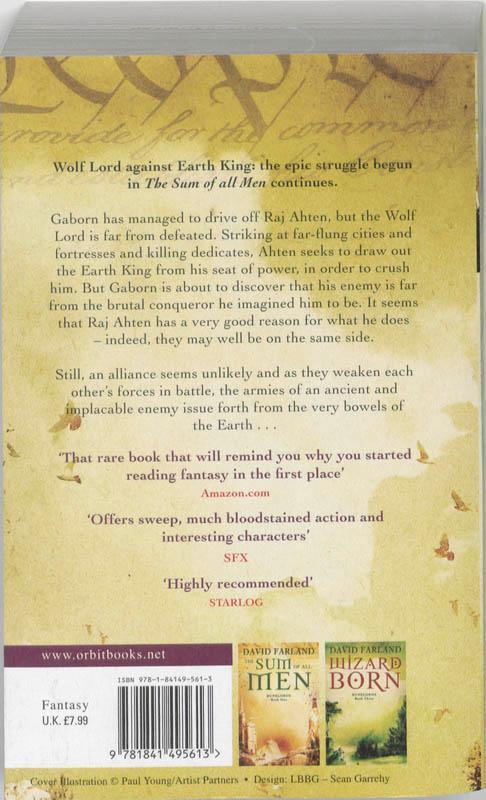 People
provide for the common
Wolf Lord against Earth King: the epic struggle begun
in The Sum of all Men continues.
Gaborn has managed to drive off Raj Ahten, but the Wolf
Lord is far from defeated. Striking at far-flung cities and
fortresses and killing dedicates, Ahten seeks to draw out
the Earth King from his seat of power, in order to crush
him. But Gaborn is about to discover that his enemy is far
from the brutal conqueror he imagined him to be. It seems
that Raj Ahten has a very good reason for what he does
– indeed, they may well be on the same side.
Still, an alliance seems unlikely and as they weaken each
other's forces in battle, the armies of an ancient and
implacable enemy issue forth from the very bowels of
the Earth . . .
‘That rare book that will remind you why you started
reading fantasy in the first place’
Amazon.com
‘Offers sweep, much bloodstained action and
interesting characters’
SFX
‘Highly recommended’
STARLOG
www.orbitbooks.net
Fantasy
U.K. £7.99
ISBN 978-1-84149-561-3
9 781841 495613 >
DAVID FARLAND
THE SUM OF ALL
MEN
RUNELORDS
Book One
DAVID FARLAND
WIZARD
BORN
RUNELORDS
Book Three
Cover Illustration © Paul Young/Artist Partners • Design: LBBG – Sean Garrehy